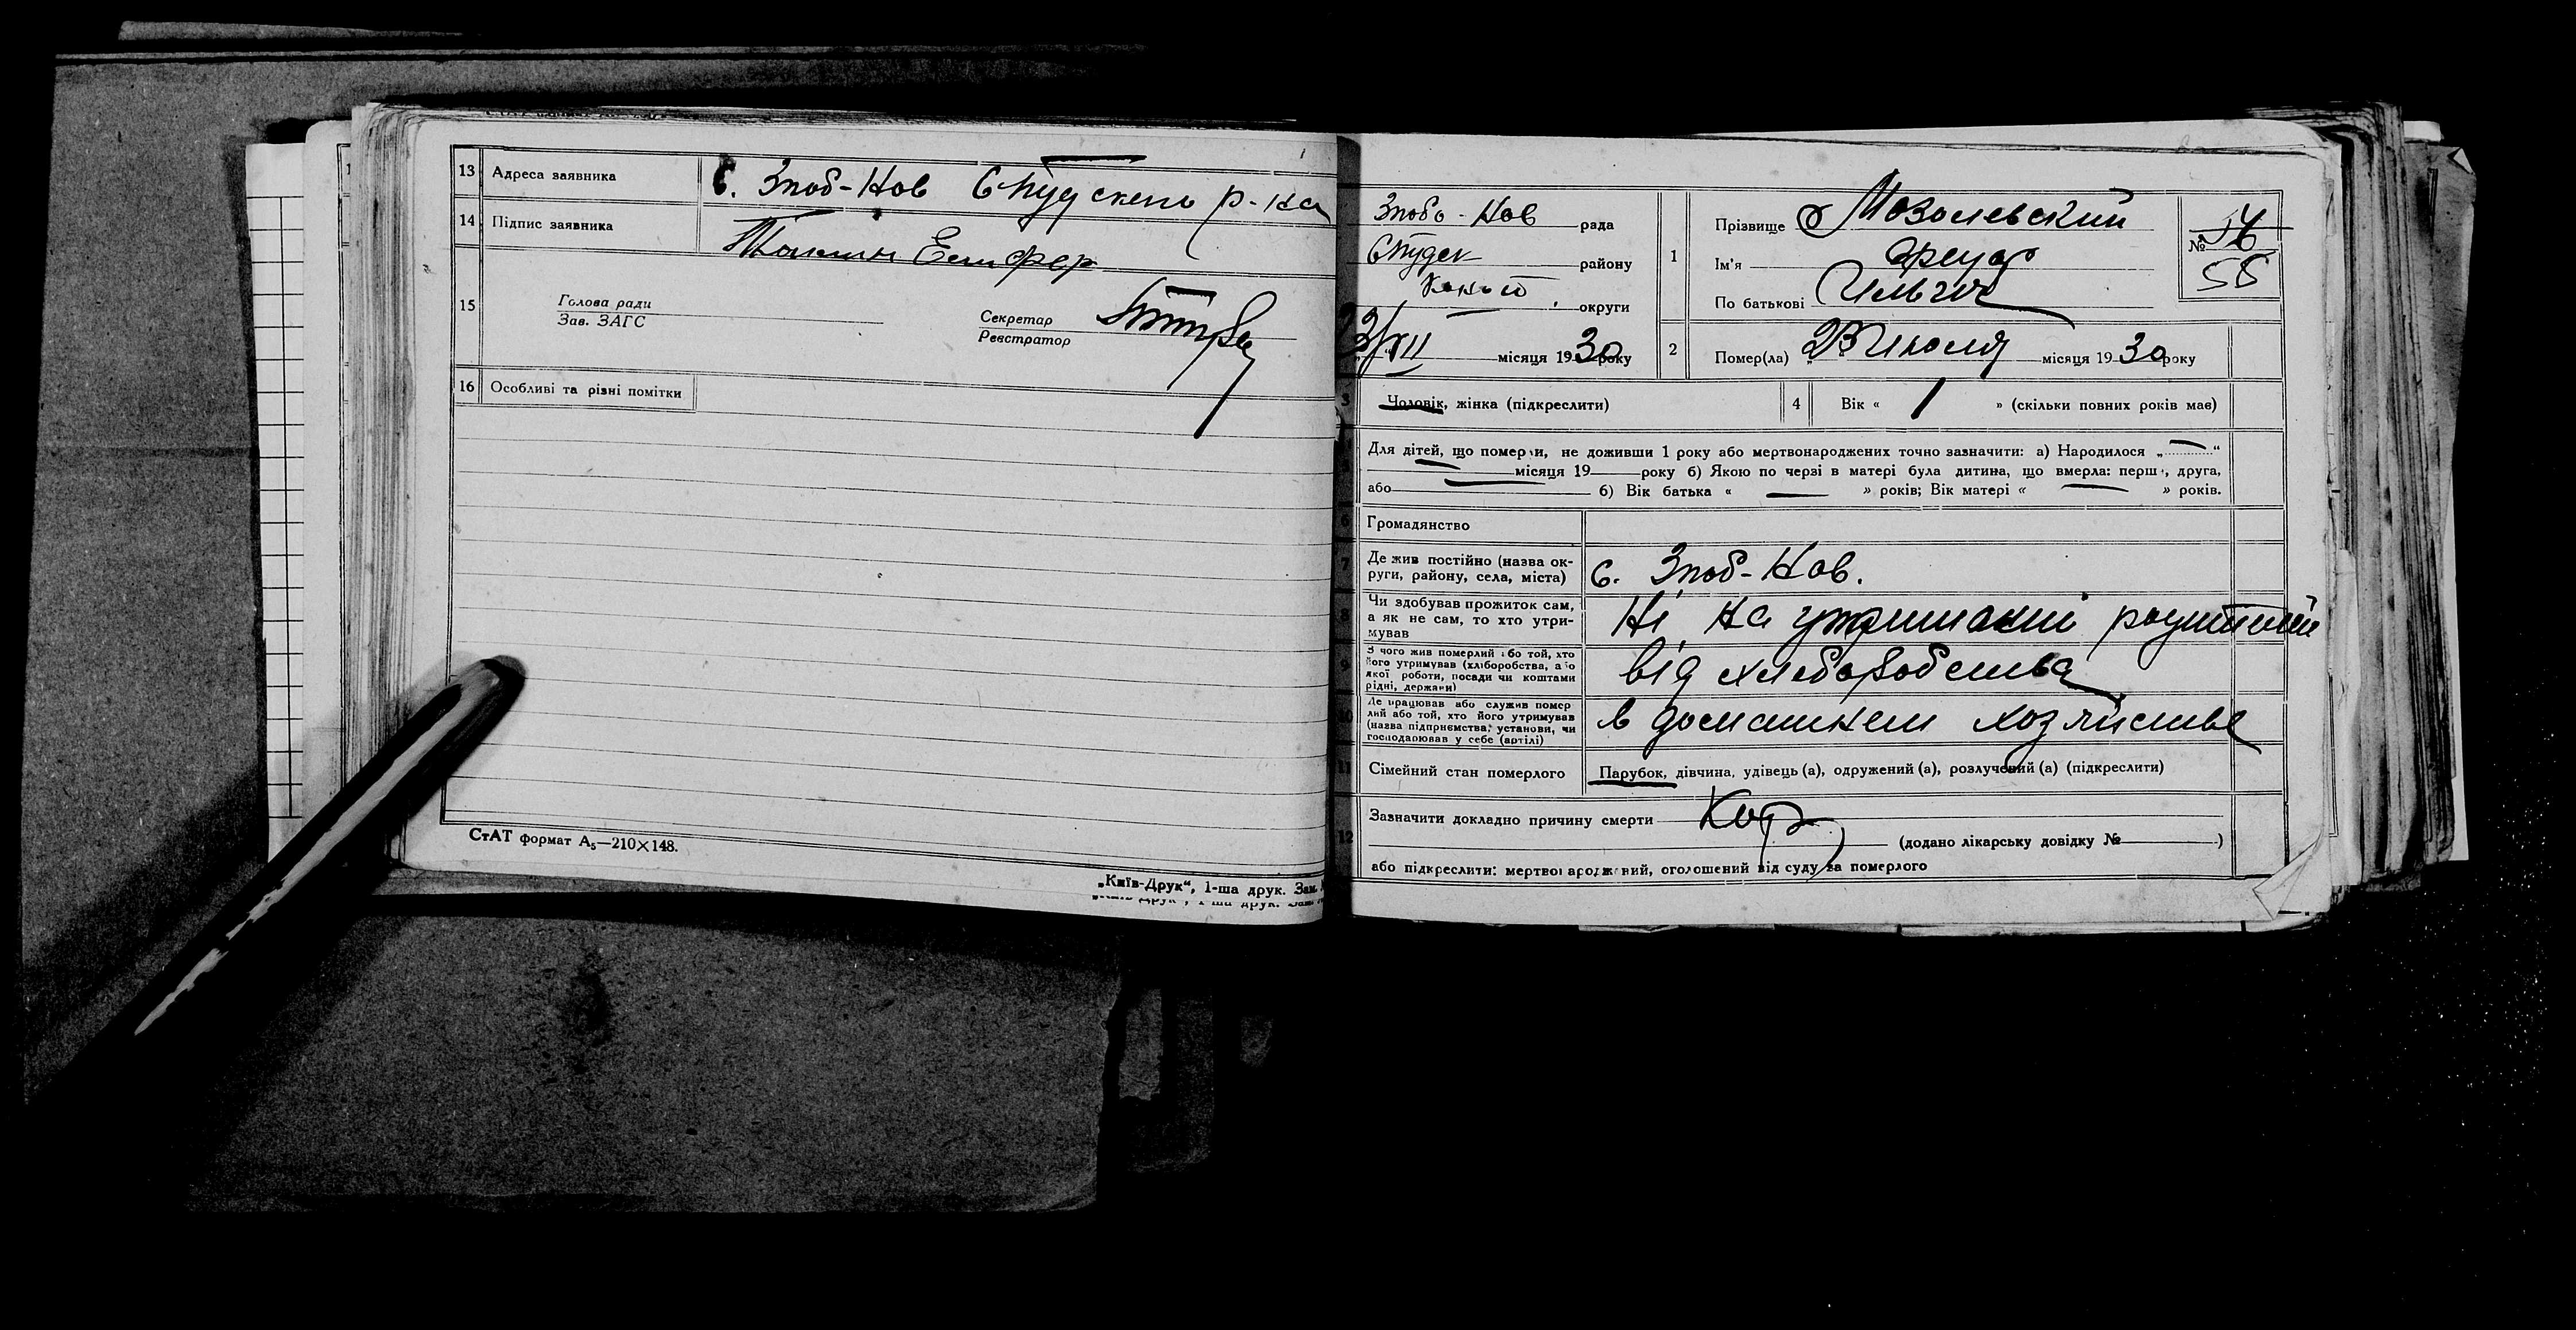 13 Адреса заявника с. Зноб-Нов Студ ского р-ка
14 Підпис заявника
15 Голова ради
Зав. ЗАГС
Секретар
Реєстратор
16 Особливі та різні помітки
СтАТ формат А₅—210×148.
„Київ-Друк“, 1-ша друк. Зам.
Знобо-Нов рада
району
округи
2/VII місяця 1930 року
1 Прізвище Мозолевский
Ім'я
По батькові Ильич
№
58
2 Помер(ла) „2 Июля місяця 1930 року
3 Чоловік, жінка (підкреслити)
4 Вік « 1 » (скільки повних років має)
Для дітей, що померли, не доживши 1 року або мертвонароджених точно зазначити: а) Народилося „ — “
місяця 19 року б) Якою по черзі в матері була дитина, що вмерла: перша, друга,
або б) Вік батька « — » років; Вік матері « — » років.
6 Громадянство
7 Де жив постійно (назва ок-
руги, району, села, міста) с. Зноб-Нов.
8 Чи здобував прожиток сам,
а як не сам, то хто утри-
мував Ні на утриманні родителей
9 З чого жив померлий або той, хто
його утримував (хліборобства, або
якої роботи, посади чи коштами
рідні, держави) від хлеборобства
10 Де працював або служив помер
лий або той, хто його утримував
(назва підприємства, установи, чи
господарював у себе (артілі) в домашнем хозяйстве
11 Сімейний стан померлого Парубок, дівчина, удівець (а), одружений (а), розлучений (а) (підкреслити)
12 Зазначити докладно причину смерти Корь
(додано лікарську довідку № )
або підкреслити: мертвонароджений, оголошений від суду за померлого